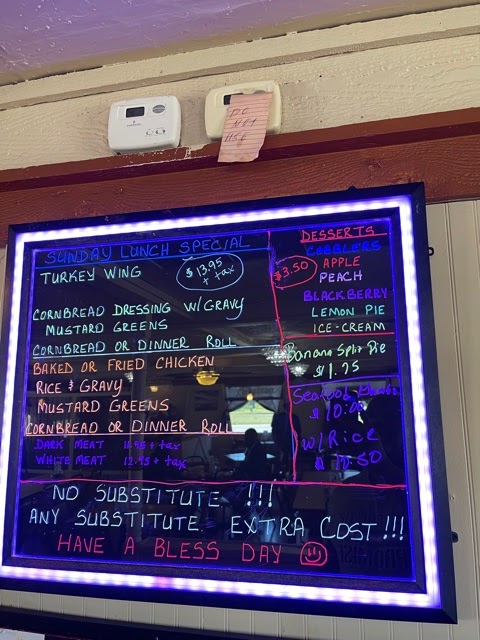 DO
NOT
USE
SUNDAY LUNCH SPECIAL
TURKEY WING
$13.95
+ tax
CORNBREAD DRESSING W/GRAVY
MUSTARD GREENS
CORNBREAD OR DINNER ROLL
BAKED OR FRIED CHICKEN
RICE & GRAVY
MUSTARD GREENS
CORNBREAD OR DINNER ROLL
DARK MEAT 10.95 + tax
WHITE MEAT 12.95 + tax
DESSERTS
COBBLERS
$3.50
APPLE
PEACH
BLACKBERRY
LEMON PIE
ICE-CREAM
Banana Split Pie
$1.75
Seafood
$10.00
W/Rice
$10.50
NO SUBSTITUTE !!!
ANY SUBSTITUTE EXTRA COST!!!
HAVE A BLESS DAY